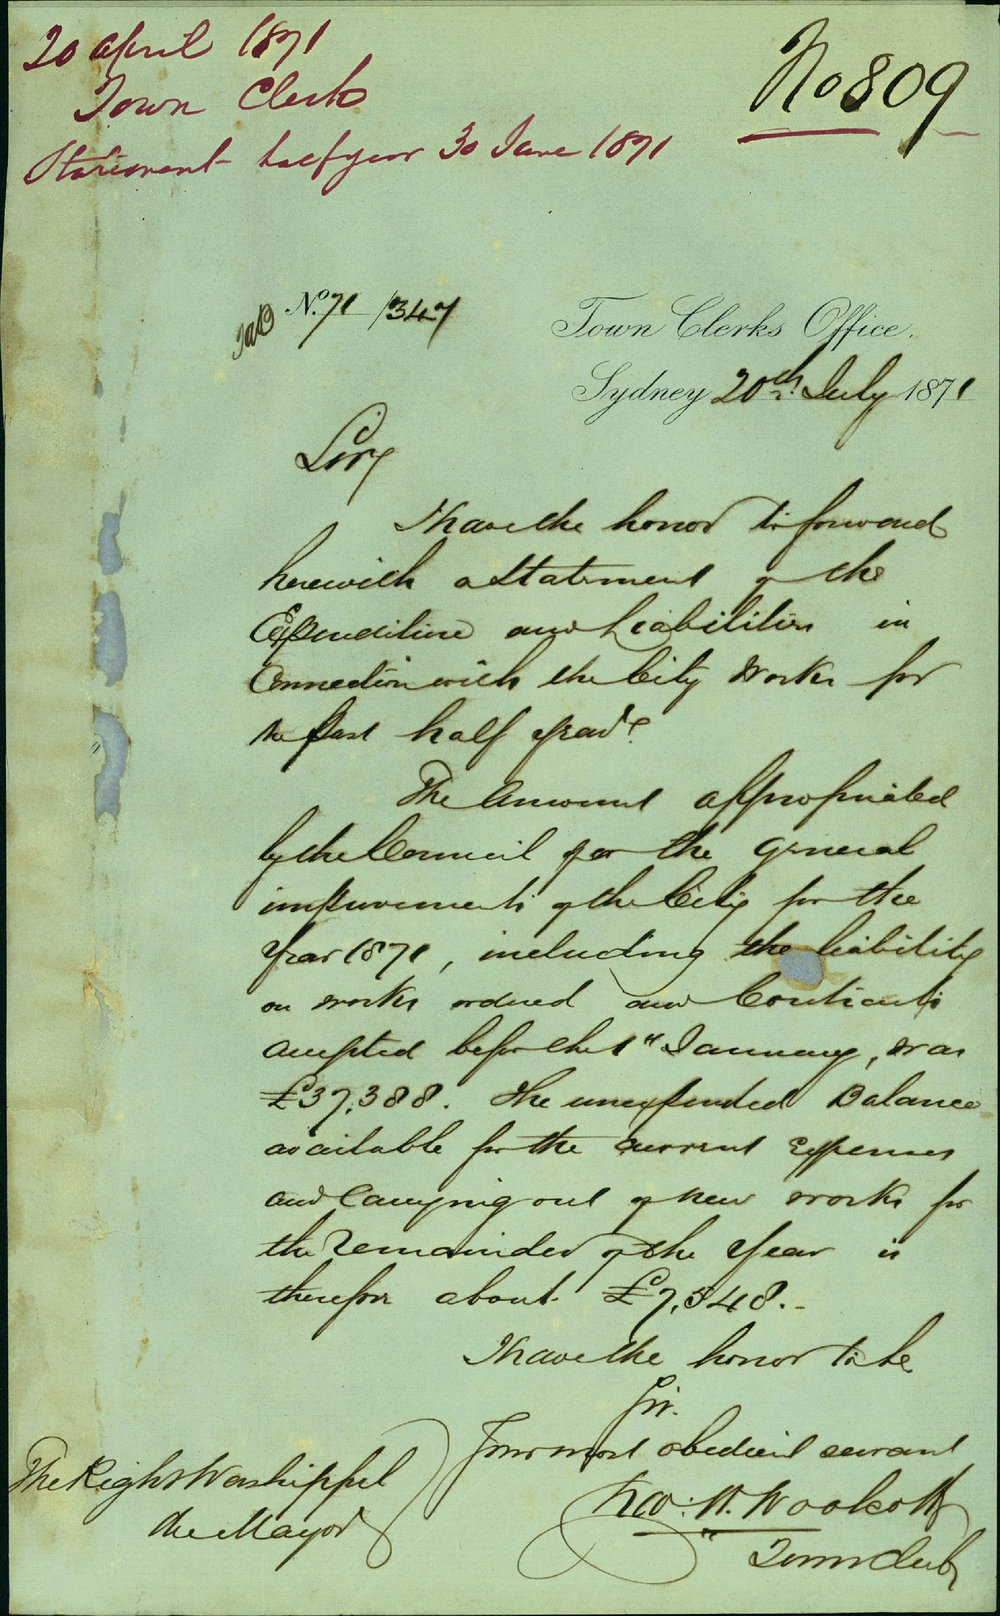 20 April 1871
Town Clerk
Statement half year 30 June 1871
No 809
No. 71/347
Town Clerks Office.
Sydney 20th July 1871
Sir,
I have the honor to forward
herewith a Statement of the
Expenditure and Liabilities in
Connection with the City Works for
the past half year.
The Amount appropriated
by the Council for the General
improvements of the City for the
Year 1871, including the liability
on works ordered and Contracts
accepted before the 1st January, was
£37,388. The unexpended Balance
available for the current Expenses
and Carrying out of new works for
the remainder of the Year is
therefore about £7,548.-
I have the honor to be
Sir.
Your most obedient servant
Chas. H. Woolcott
Town Clerk
The Right Worshipful
the Mayor